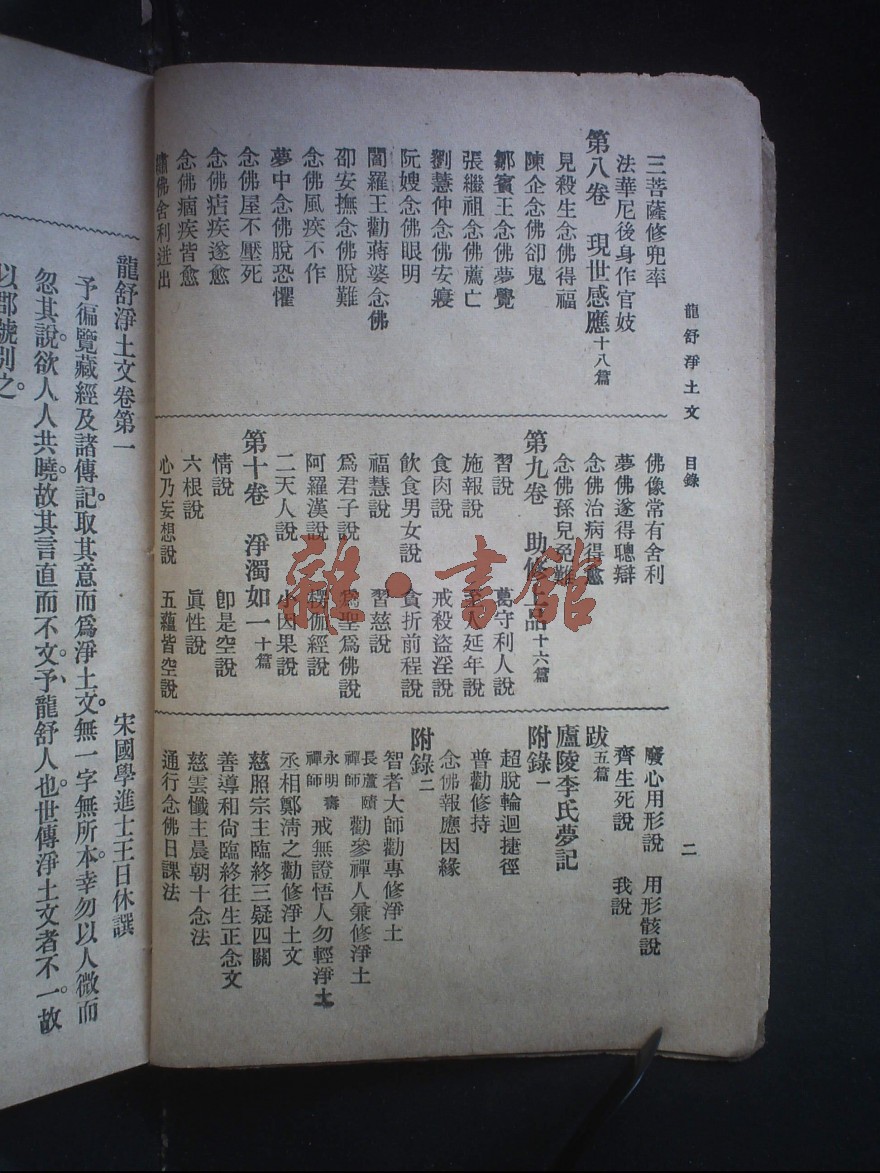 龍舒淨土文 目錄 二
三菩薩修兜率
法華尼後身作官妓
第八卷 現世感應十八篇
見殺生念佛得福
陳企念佛卻鬼
鄒賓王念佛夢覺
張繼祖念佛薦亡
劉慧仲念佛安寢
阮嫂念佛眼明
閻羅王勸蔣婆念佛
邵安撫念佛脫難
念佛風疾不作
夢中念佛脫恐懼
念佛屋不壓死
念佛痁疾遂愈
念佛痼疾皆愈
繡佛舍利迸出
佛像常有舍利
夢佛遂得聰辯
念佛治病得愈
念佛孫兒免難
第九卷 助修上品十六篇
習說 葛守利人說
施報說 至人延年說
食肉說 戒殺盜淫說
飲食男女說 貪折前程說
福慧說 習慈說
爲君子說 爲聖爲佛說
阿羅漢說 楞伽經說
二天人說 小因果說
第十卷 淨濁如一十篇
情說 卽是空說
六根說 眞性說
心乃妄想說 五蘊皆空說
廢心用形說 用形骸說
齊生死說 我說
跋五篇
廬陵李氏夢記
附錄一
超脫輪迴捷徑
普勸修持
念佛報應因緣
附錄二
智者大師勸專修淨土
長蘆賾禪師勸參禪人兼修淨土
永明壽禪師戒無證悟人勿輕淨土
丞相鄭淸之勸修淨土文
慈照宗主臨終三疑四關
善導和尙臨終往生正念文
慈雲懺主晨朝十念法
通行念佛日課法
龍舒淨土文卷第一
宋國學進士王日休譔
予徧覽藏經及諸傳記。取其意而爲淨土文。無一字無所本。幸勿以人微而
忽其說。欲人人共曉。故其言直而不文。予龍舒人也。世傳淨土文者不一。故
以郡號別之。
雜·書館